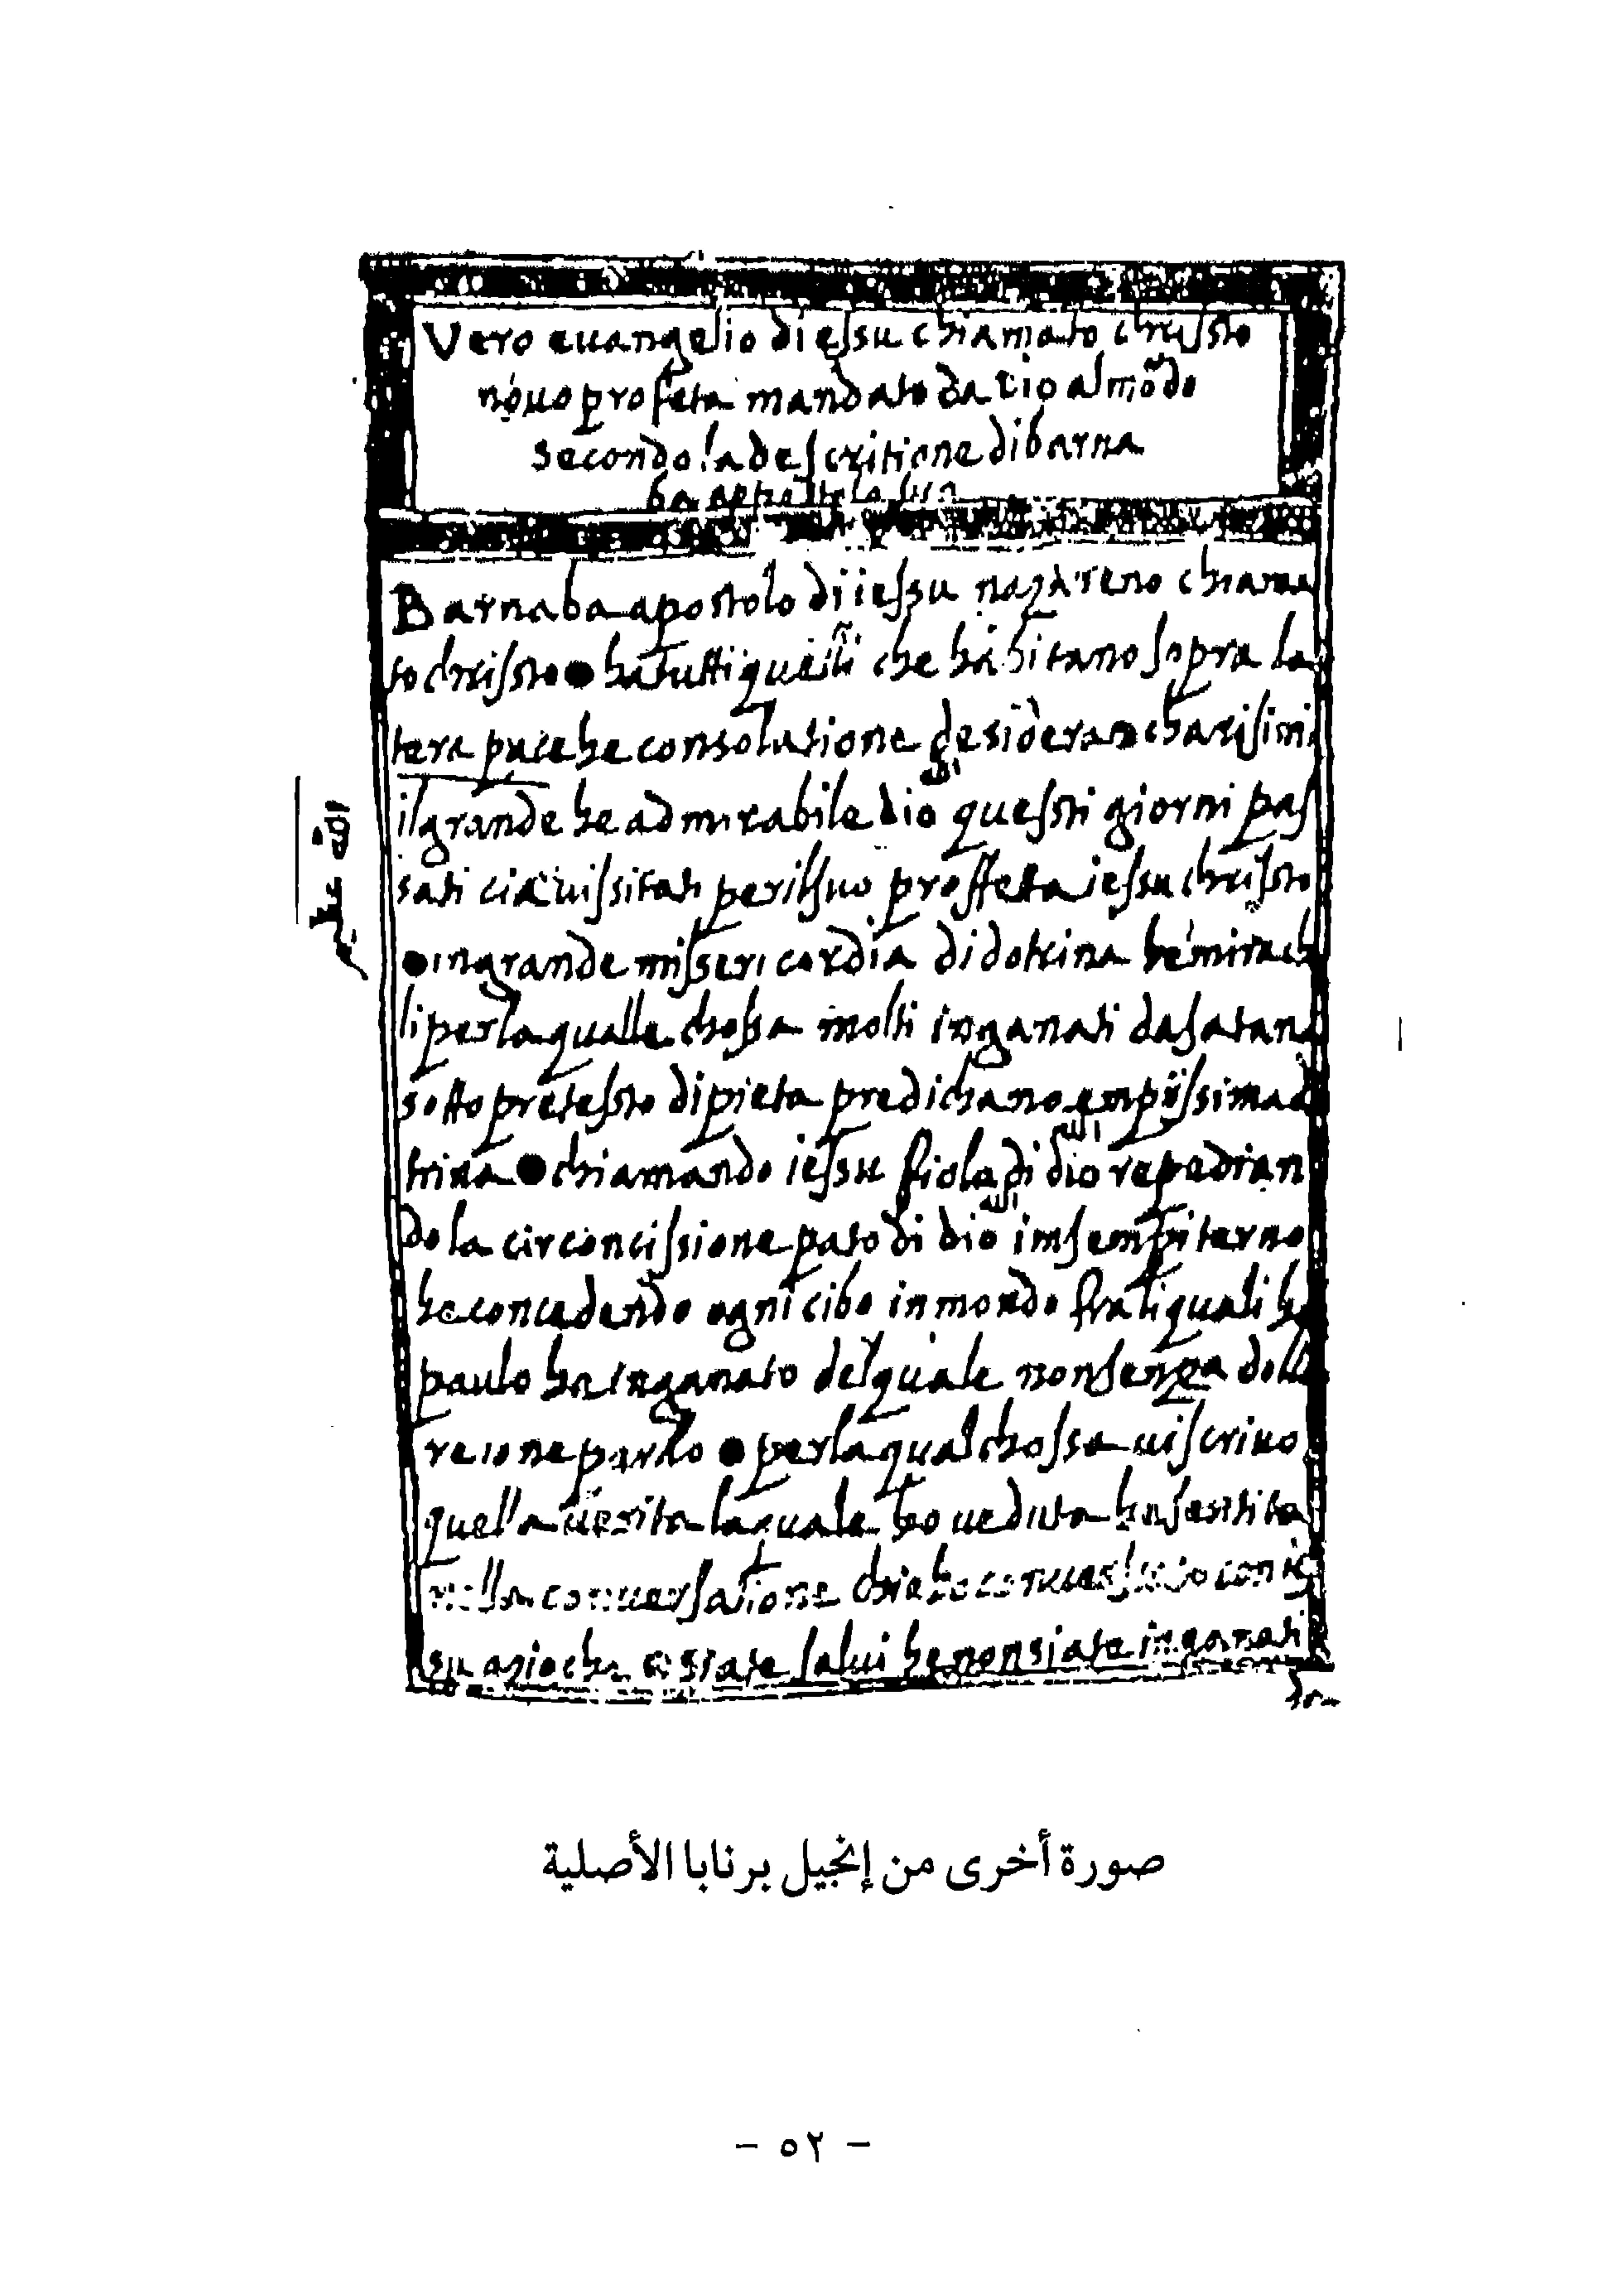 Vero euangelio di essu chiamato chrissto
nouo profeta mandato da dio al mõdo
secondo la descritione di barna
ba apostolo suo
Barnaba apostolo di iessu nazareno chiama
to chrissto ● ha tutti quelli che habitano sopra la
tera pace he consolatione desidera ● charisimi
الله
il grande he admirabile dio quessti giorni pas
sati cia uissitati per il suo proffetta iessu chrissto
● in grande misseri cordia di dotrina he mirach
li per la qualle chossa molti inganati da satana
sotto pretessto di pieta predichano empiissima d
الله
trina ● chiamando iessu fiolo di dio repudian
الله
do la circoncissione pato di dio in sempiterno
he concedendo ogni cibo in mondo fra li quali he
paulo ha inganato del quale non senza dollo
re ione parlo ● per la qual chossa ui scriuo
quella uerita la quale ho ueduta he sentita
nella conuersatione che ho conuerssato con ies
su azio che siate salui he non siate inganati
da
الله عظيم
صورة أخرى من إنجيل برنابا الأصلية
- ٥٢ -